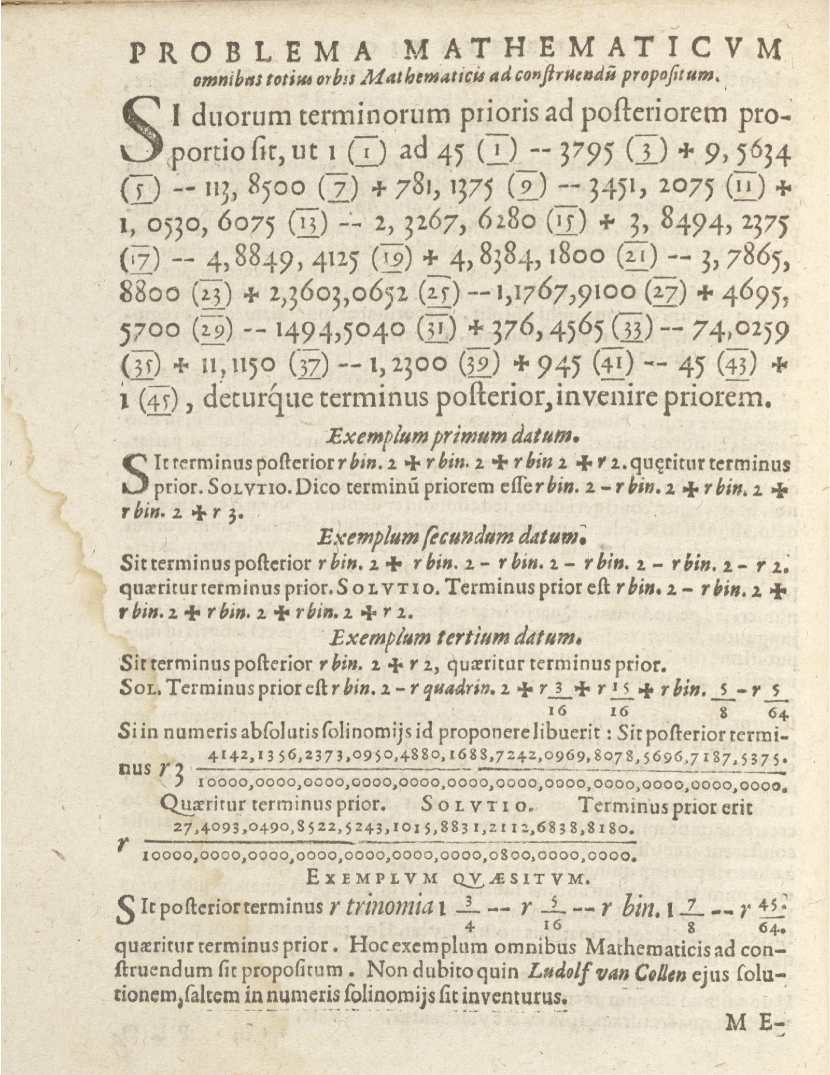 PROBLEMA MATHEMATICVM
omnibus totius orbis Mathematicis ad construendū propositum.
SI duorum terminorum prioris ad posteriorem pro-
portio sit, ut 1 (1) ad 45 (1) -- 3795 (3) + 9, 5634
(5) -- 113, 8500 (7) + 781, 1375 (9) -- 3451, 2075 (11) +
1, 0530, 6075 (13) -- 2, 3267, 6280 (15) + 3, 8494, 2375
(17) -- 4,8849, 4125 (19) + 4, 8384, 1800 (21) -- 3, 7865,
8800 (23) + 2,3603,0652 (25) -- 1,1767,9100 (27) + 4695,
5700 (29) -- 1494,5040 (31) + 376, 4565 (33) -- 74,0259
(35) + 11, 1150 (37) -- 1, 2300 (39) + 945 (41) -- 45 (43) +
1 (45) , deturq́ue terminus posterior, invenire priorem.
Exemplum primum datum.
SIt terminus posterior r bin. 2 + r bin. 2 + r bin 2 + r 2. quęritur terminus
prior. SOLVTIO. Dico terminū priorem esse r bin. 2 - r bin. 2 + r bin. 2 +
r bin. 2 + r 3.
Exemplum secundum datum.
Sit terminus posterior r bin. 2 + r bin. 2 - r bin. 2 - r bin. 2 - r bin. 2 - r 2.
quæritur terminus prior. SOLVTIO. Terminus prior est r bin. 2 - r bin. 2 +
r bin. 2 + r bin. 2 + r bin. 2 + r 2.
Exemplum tertium datum.
Sit terminus posterior r bin. 2 + r 2, quæritur terminus prior.
SOL. Terminus prior est r bin. 2 - r quadrin. 2 + r 3/16 + r 15/16 + r bin. 5/8 - r 5/64
Si in numeris absolutis solinomijs id proponere libuerit : Sit posterior termi-
nus r 3 4142,1356,2373,0950,4880,1688,7242,0969,8078,5696,7187,5375.
10000,0000,0000,0000,0000,0000,0000,0000,0000,0000,0000,0000.
Quæritur terminus prior. SOLVTIO. Terminus prior erit
r 27,4093,0490,8522,5243,1015,8831,2112,6838,8180.
10000,0000,0000,0000,0000,0000,0000,0800,0000,0000.
EXEMPLVM QVÆSITVM.
SIt posterior terminus r trinomia 1 3/4 -- r 5/16 -- r bin. 1 7/8 -- r 45/64.
quæritur terminus prior. Hoc exemplum omnibus Mathematicis ad con-
struendum sit propositum. Non dubito quin Ludolf van Collen ejus solu-
tionem, saltem in numeris solinomijs sit inventurus.
ME-